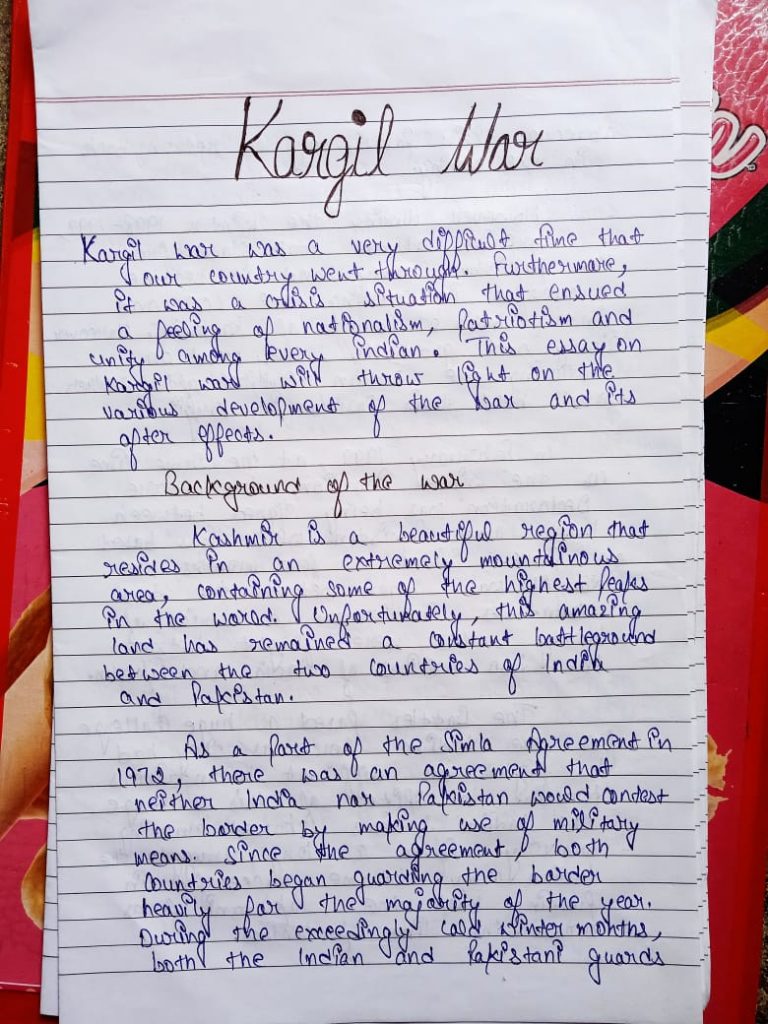 Kargil War
Kargil war was a very difficult time that
our country went through. Furthermore,
it was a crisis situation that ensued
a feeling of nationalism, patriotism and
unity among every indian. This essay on
Kargil war will throw light on the
various development of the war and its
after effects.
Background of the war
Kashmir is a beautiful region that
resides in an extremely mountainous
area, containing some of the highest peaks
in the world. Unfortunately, this amazing
land has remained a constant battleground
between the two countries of India
and Pakistan.
As a part of the Simla Agreement in
1972, there was an agreement that
neither India nor Pakistan would contest
the border by making use of military
means. Since the agreement, both
countries began guarding the border
heavily for the majority of the year.
During the exceedingly cold winter months,
both the Indian and Pakistani guards